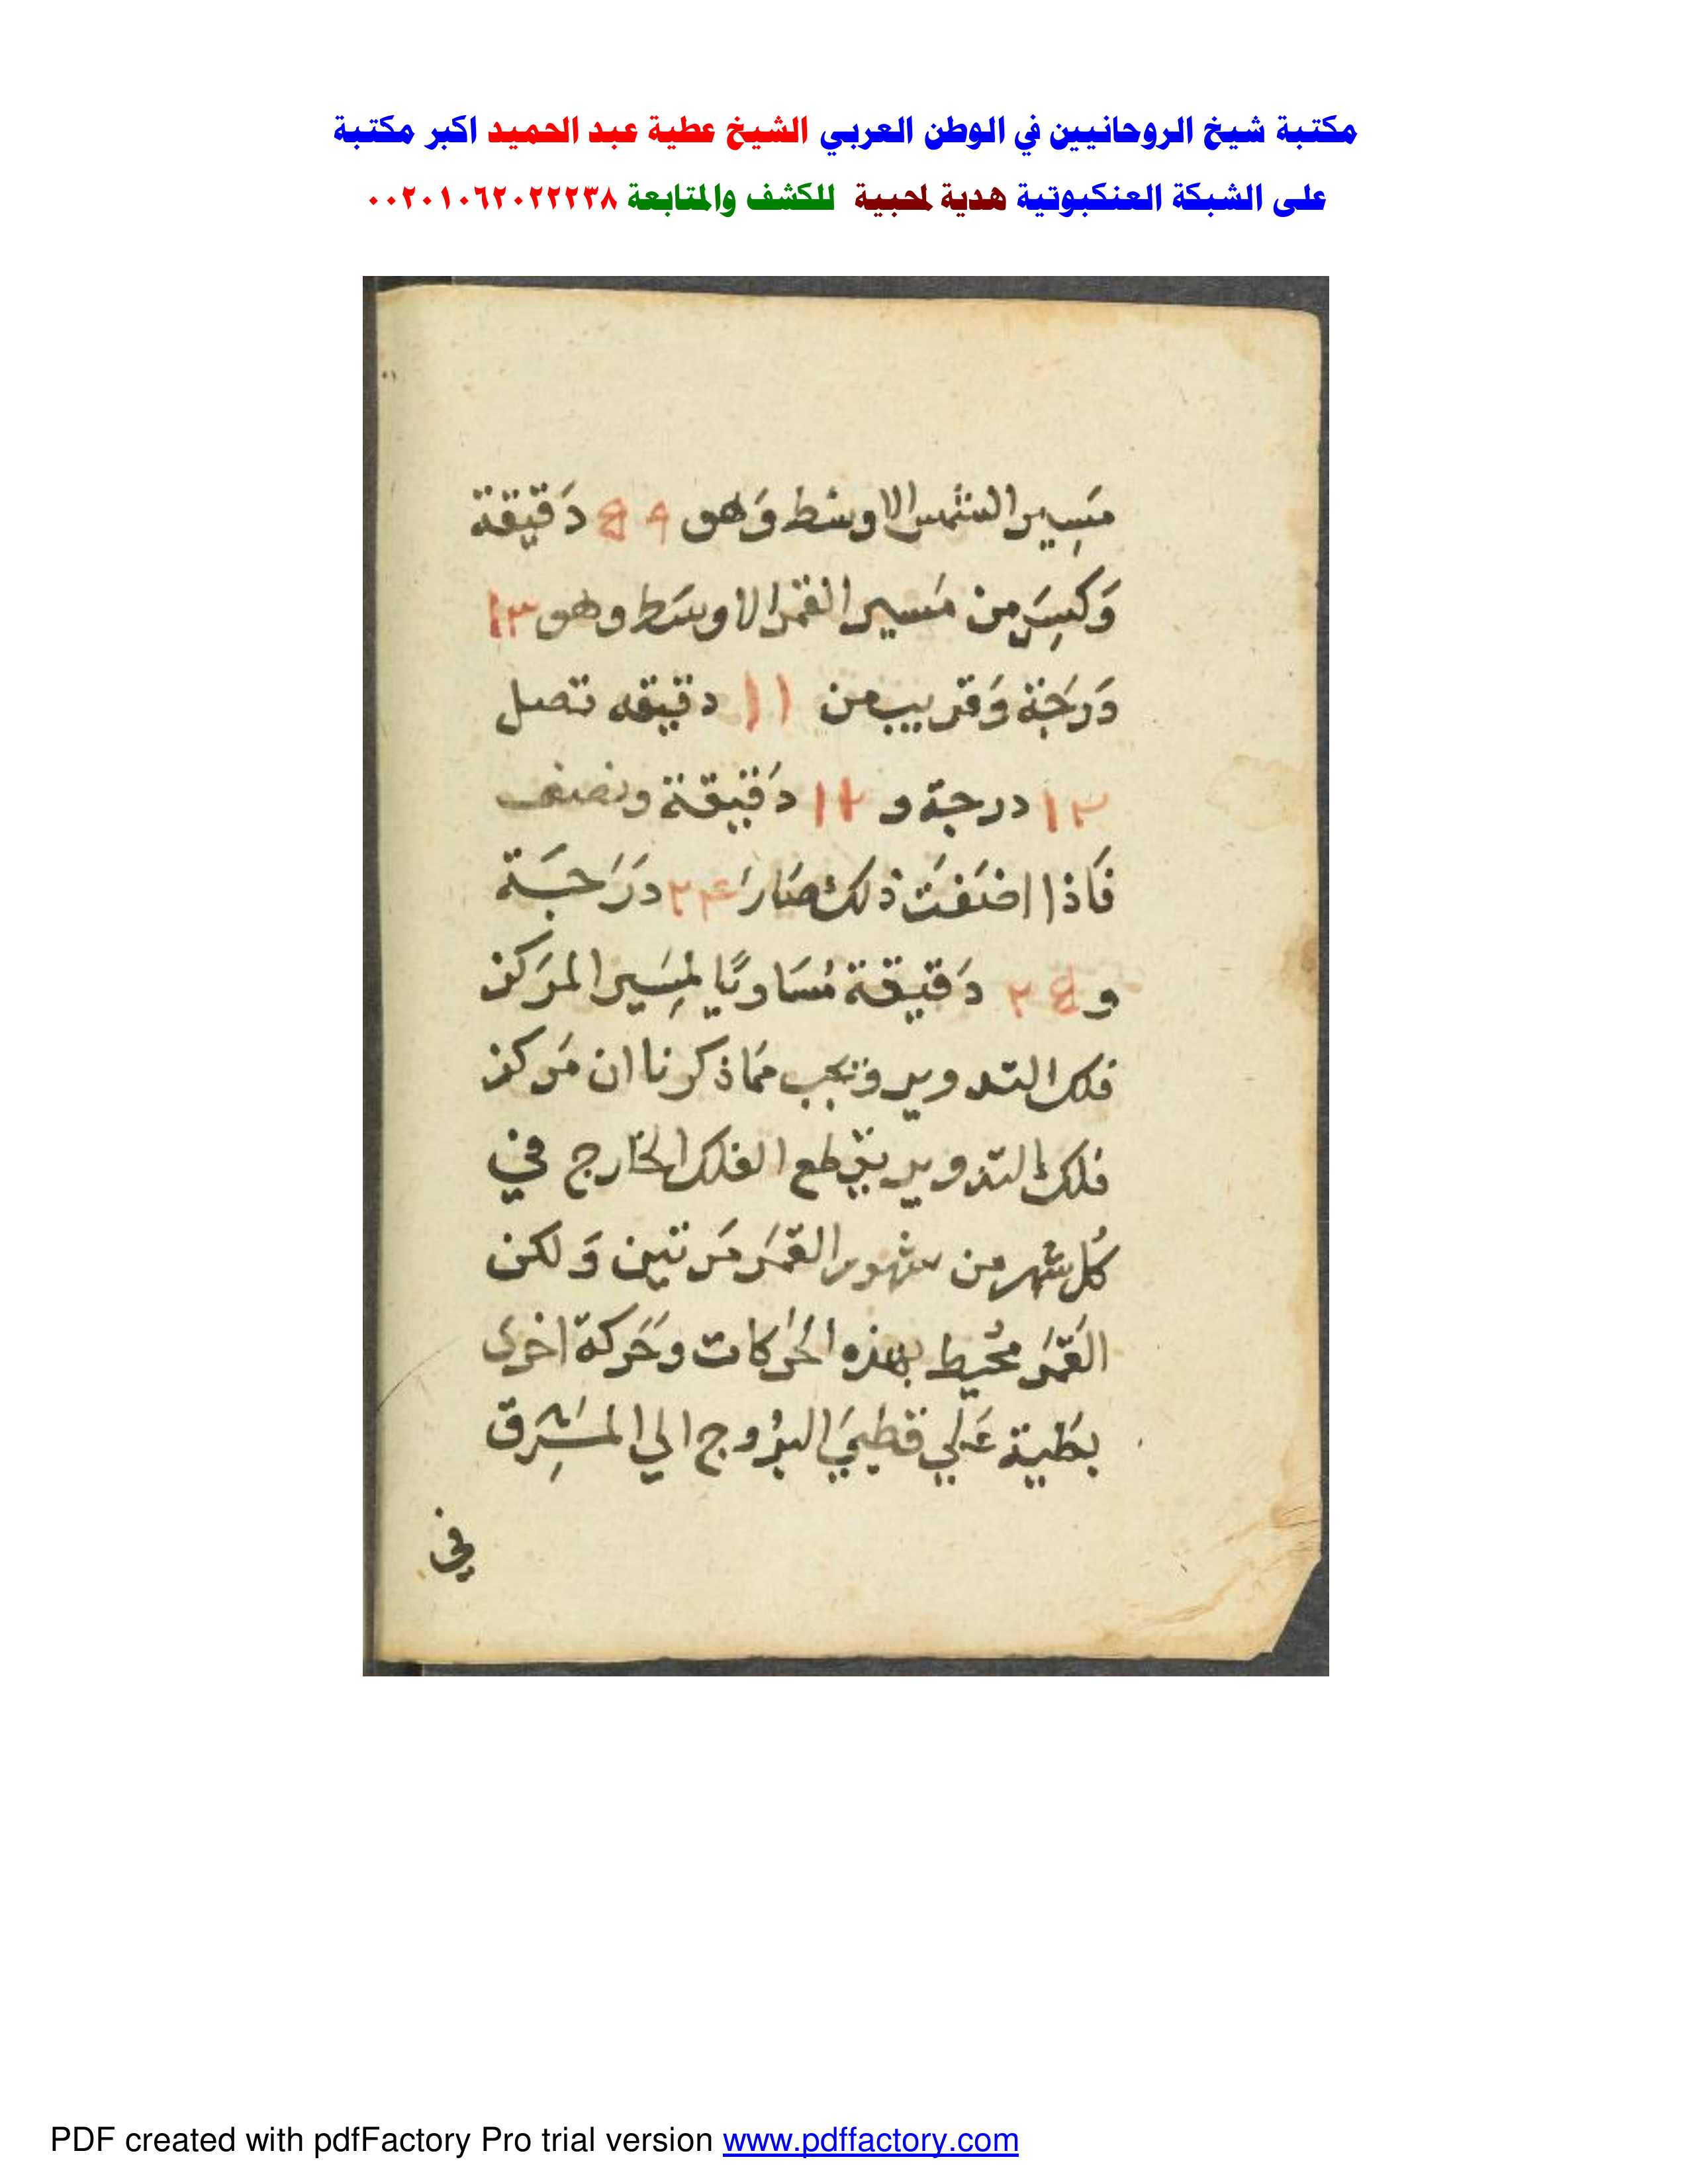 مكتبة شيخ الروحانيين في الوطن العربي الشيخ عطية عبد الحميد اكبر مكتبة
على الشبكة العنكبوتية هدية لمحبية للكشف والمتابعة ٠٠٢٠١٠٦٢٠٢٢٢٣٨
مَسِير الشمس الاوسط وَهو دَقيقة
وَكسِرَ من مَسير القمر الاوسَط وهو ١٣
دَرَجَة وَقريب من ١١ دقيقه تصل
١٢ درجة و ١٢ دَقيقة ونصف
فَاذا اضَفتَ ذلك صَارَ ٢٤ درَجَة
و دَقيقة مُسَاويًا لمِسَير المرَكز
فلك التدوير وَيجب ممَا ذكرنا ان مَركز
فلك التدوير يقطع الفلك الخارج في
كُل شهر من شهور القمَر مَرتين وَلكن
القَمَر محُيط بهذه الحَركات وَحَركة اخرى
بطَية عَلي قطبيَ البرُوج الي المشَرِق
في
PDF created with pdfFactory Pro trial version www.pdffactory.com